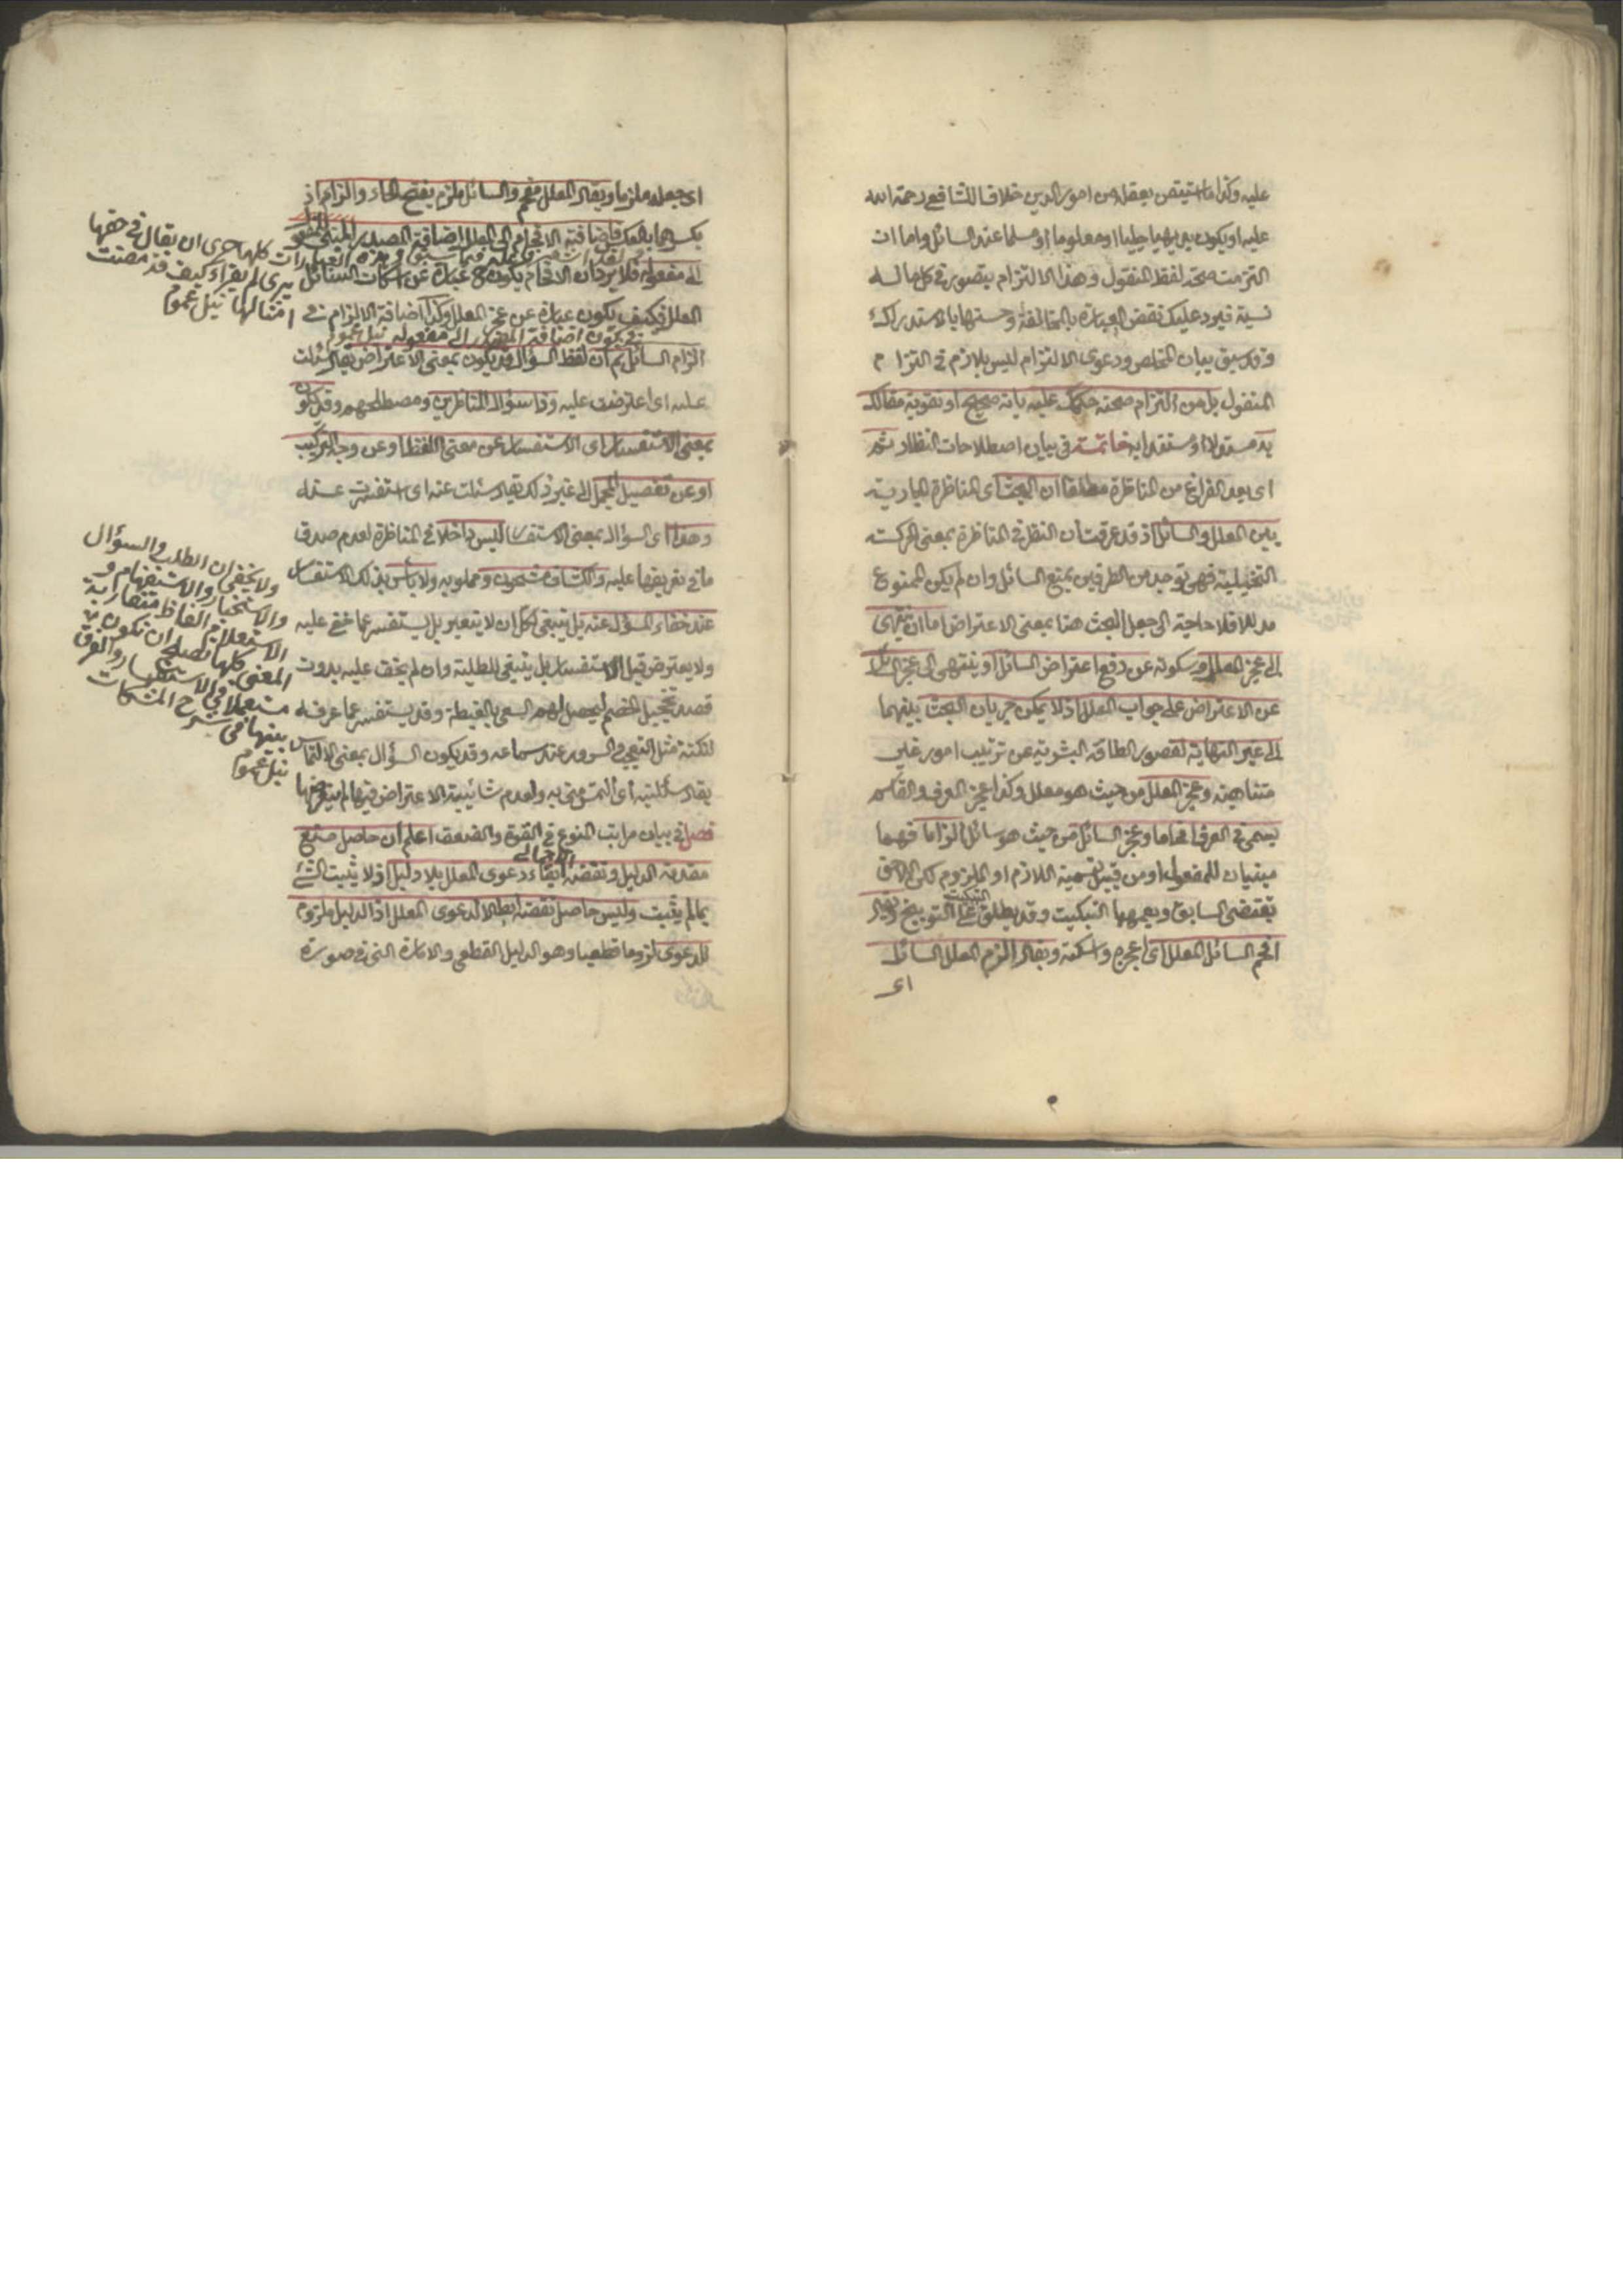 عليه وكذا ما استيقن بعقله من امور الدين خلافا للشافعي رحمة الله
عليه او يكون بديهيا جليا او معلوما او مسلما عند السائل واما ان
التزمت صحة لفظ المنقول وهذا الالتزام يتصور في كل ما له
نسبة فيرد عليك نقض العبارة بالمخالفة وحسنها بالاستدراك
وقد سبق بيان المخلص ودعوى الالتزام ليس بلازم في التزام
المنقول بل من التزام صحته حكمك عليه بانه صحيح او تقوية مقالك
به مستدلا او مستندا به خاتمة في بيان اصطلاحات النظار ثم
اى بعد الفراغ من المناظرة مطلقا ان البحث اى المناظرة الجارية
بين المعلل والسائل اذ قد عرفت ان النظر في المناظرة بمعنى الحركة
التخيلية فهي توجد من الطرفين بمنع السائل وان لم يكن الممنوع
مدللا فلا حاجة الى جعل البحث هنا بمعنى الاعتراض اما ان ينتهى
الى عجز المعلل وسكوته عن دفع اعتراض السائل او ينتهى الى عجز السائل
عن الاعتراض على جواب المعلل اذ لا يمكن جريان البحث بينهما
الى غير النهاية لقصور الطاقة البشرية عن ترتيب امور غير
متناهية وعجز المعلل من حيث هو معلل وكذا عجز المعرف والقاسم
يسمى في العرف افحاما وعجز السائل من حيث هو سائل الزاما فهما
مبنيان للمفعول او من قبيل تسمية اللازم او الملزوم لكن اللاحق
يقتضى السابق ويعمهما التبكيت وقد يطلق التبكيت على التوبيخ ويقال
افحم السائل المعلل اى اعجزه واسكته ويقال الزم المعلل السائل
اى
اى جعله ملزما ويقال المعلل مفحم والسائل ملزم بفتح الحاء والزاء اذ
بكسرهما بالعكس فاضافة الافحام الى المعلل اضافة المصدر المبنى للمفعول
الى مفعوله فلا يرد ان الافحام يكون عبارة عن اسكات السائل
المعلل فكيف يكون عبارة عن عجز المعلل وكذا اضافة الالزام في
في يكون اضافة المصدر الى مفعوله
الزام السائل ثم ان لفظ السؤال قد يكون بمعنى الاعتراض يقال سئلت
عليه اى اعترضت عليه وذا سؤال المناظرين ومصطلحهم وقد يكون
بمعنى الاستفسار اى الاستفسار عن معنى اللفظ او عن وجه التركيب
او عن تفصيل المجمل الى غير ذلك يقال سئلت عنه اى استفسرت عنه
وهذا اى السؤال بمعنى الاستفسار ليس داخلا في المناظرة لعدم صدق
ما في تعريفها عليه والكشاف مشحون ومملو به ولا بأس بذلك الاستفسار
عند خفاء المسؤل عنه بل ينبغى لكل ان لا يتعير بل يستفسر عما خفى عليه
ولا يعترض قبل الاستفسار بل ينبغى للطلبة وان لم يخف عليه بدون
قصد تخجيل الخصم ليحصل لهم السعى بالغبطة وقد يستفسر عما عرفه
لنكتة مثل التعجب والسرور عند سماعه وقد يكون السؤال بمعنى الالتماس
يقال سئلتنيه اى التمس منى به ولعدم شائبة الاعتراض فيها لم يتعرضها
فصل في بيان مراتب المنوع في القوة والضعف اعلم ان حاصل منع
مقدمة الدليل ونقضه الاجمالى ابقاء دعوى المعلل بلا دليل اذ لا يثبت الشئ
بما لم يثبت وليس حاصل نقضه ابطالا لدعوى المعلل اذ الدليل ملزوم
للدعوى لزوما قطعيا وهو الدليل القطعى والامارة التى في صورة
كلها حرى ان يقال في حقها
يرى لم يقرأ وكيف قد مضت
امثالها
ولا يخفى ان الطلب والسؤال
والاستخبار والاستفهام و
الاستعلام الفاظ متقاربة
المعنى كلها تصلح ان تكون
مستعملا في الاستفسار والفرق
بينها في شرح المشكات